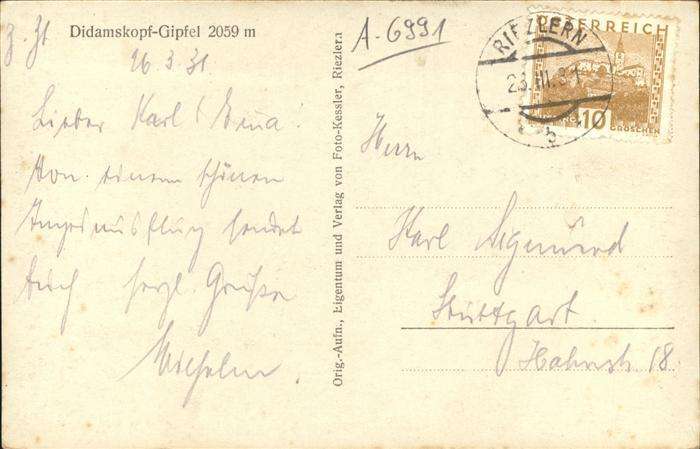 Didamskopf-Gipfel 2059 m
26.3.31.
Lieber Karl! Erna!
Von einem schönen
sendet
Euch herzl. Grüße
Wilhelm.
Orig.-Aufn., Eigentum und Verlag von Foto-Kessler, Riezlern
A-6991
RIEZLERN
ÖSTERREICH
10
GROSCHEN
Herrn
Karl
Stuttgart
18